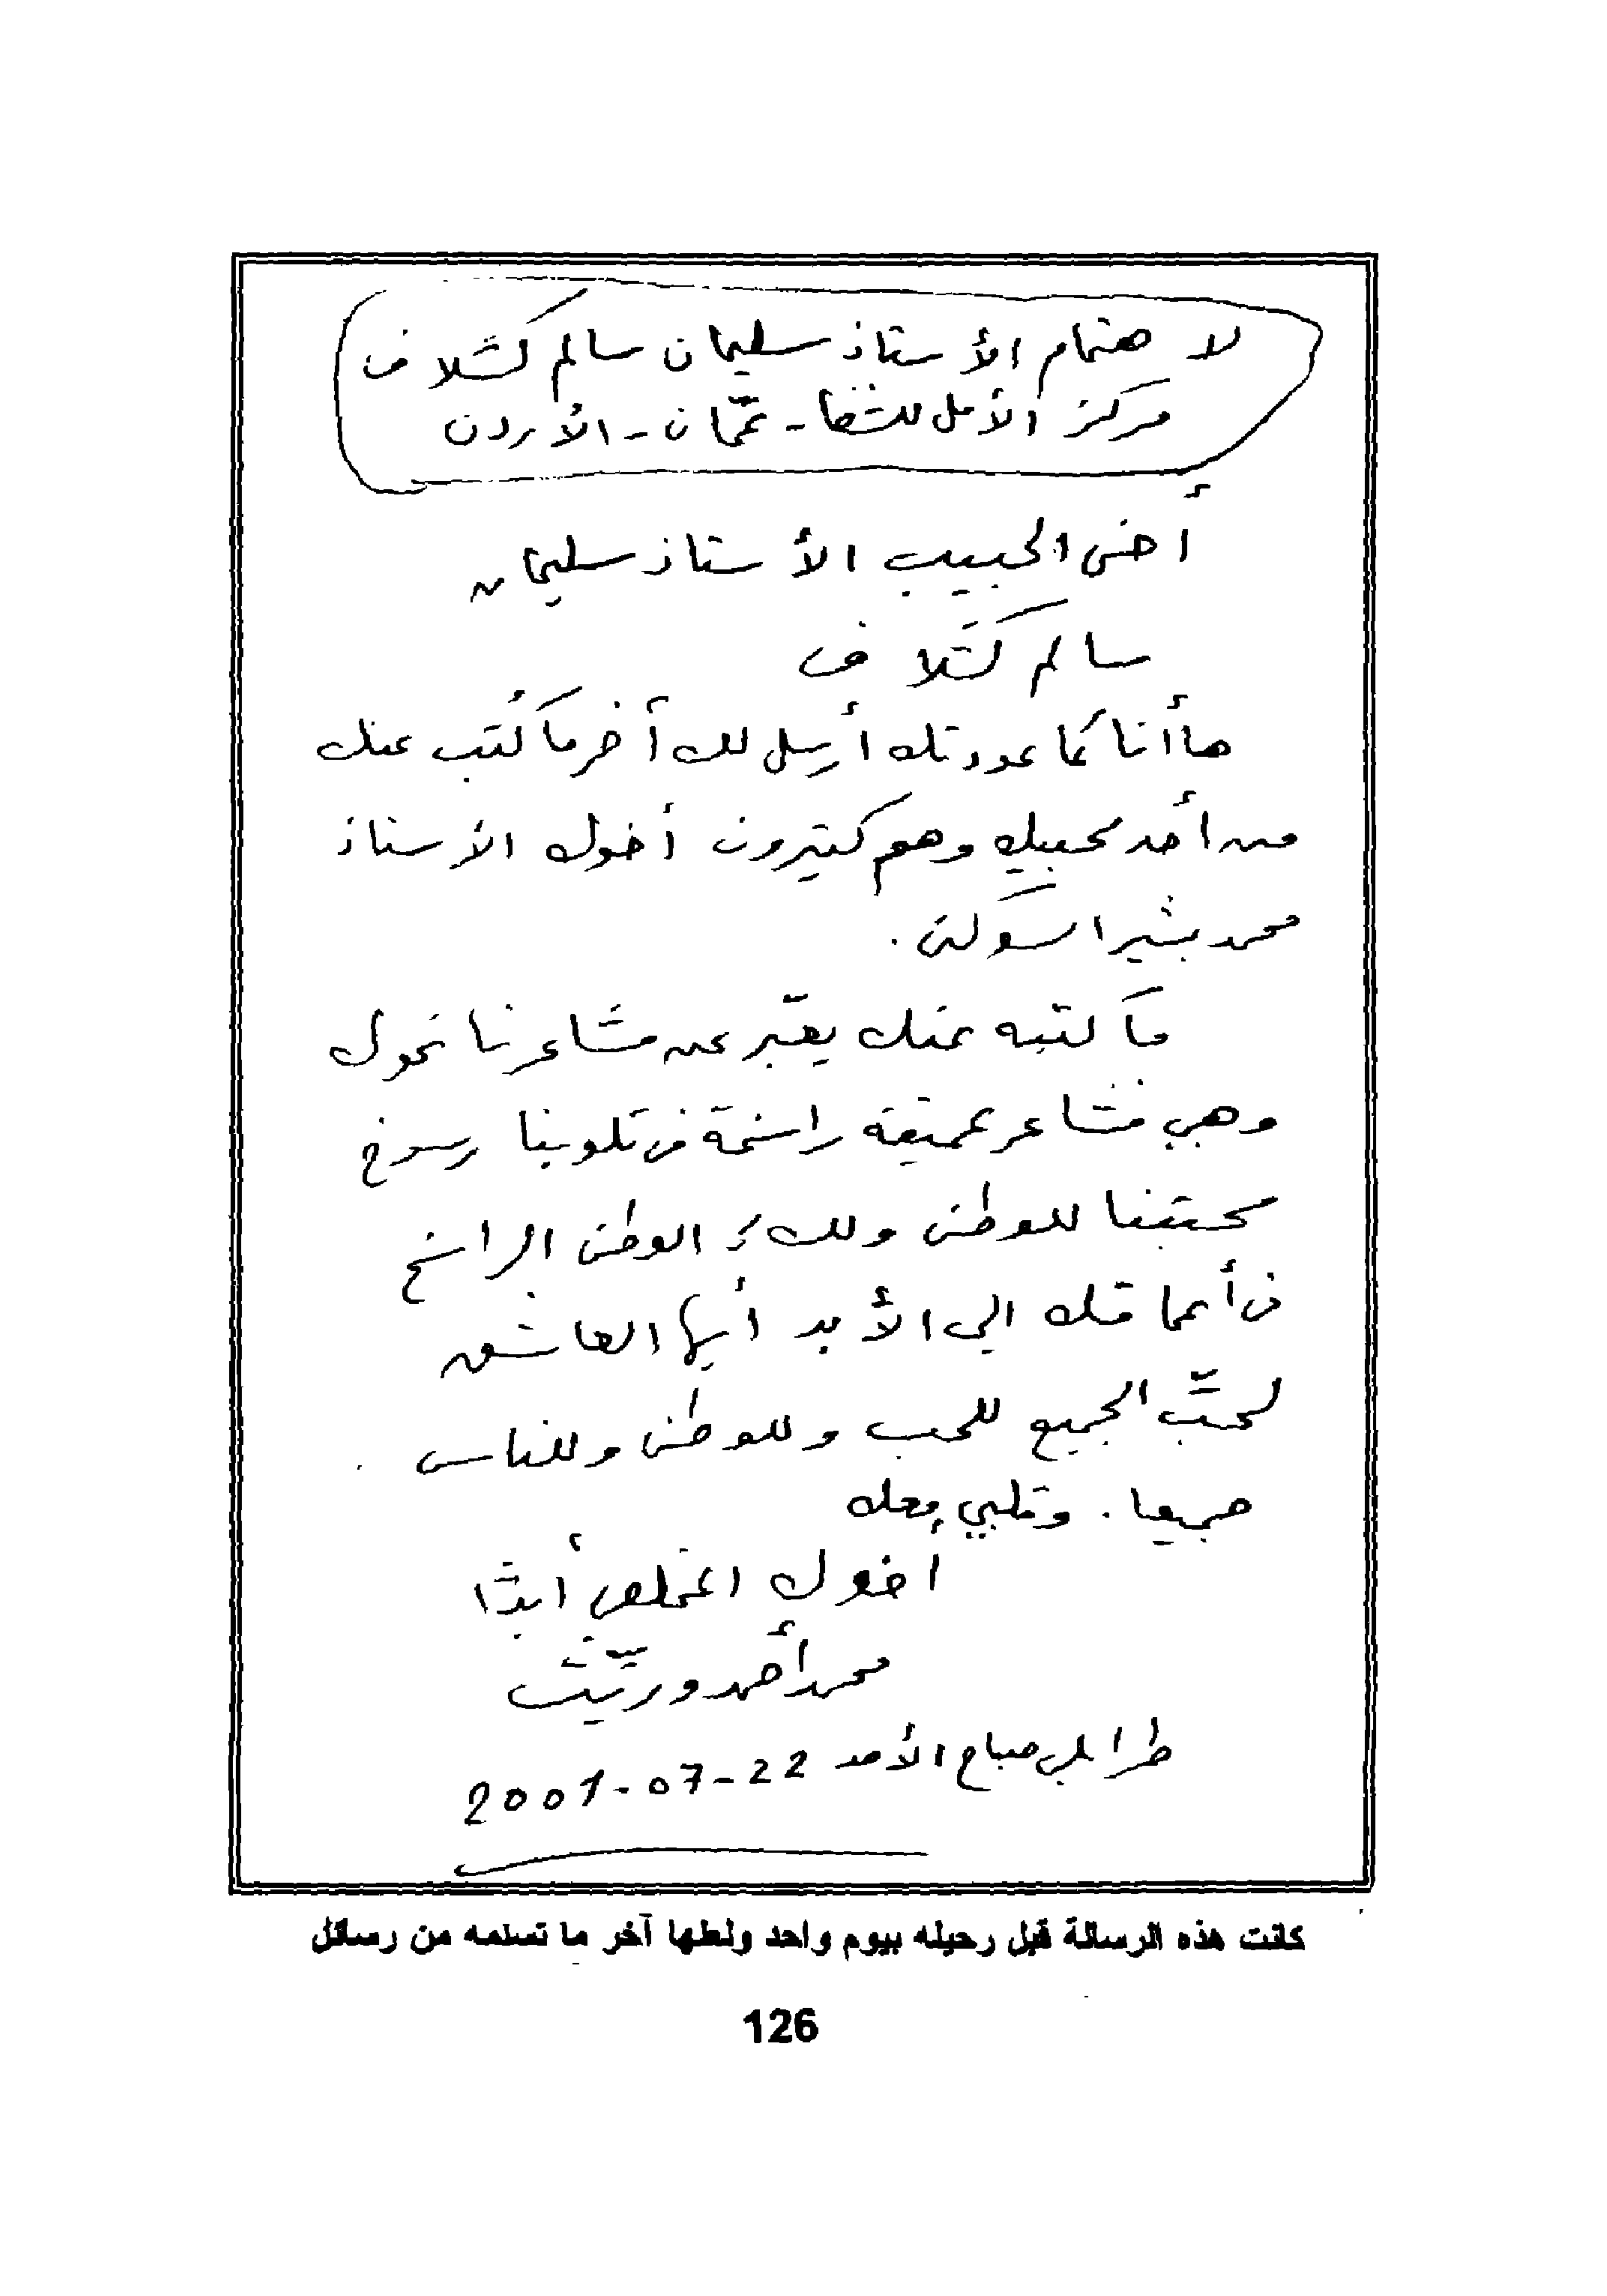 لا هتمام الأستاذ سليمان سالم كشلاف
مركز الأمل للشفا - عمّان - الأردن
أخي الحبيب الأستاذ سليمان
سالم كشلاف
ها أنا كما عودتك أرسل لك آخر ما كُتب عنك
من أحد محبيك وهم كثيرون أخوك الأستاذ
محمد بشير اسوكني.
ما كتبه عنك يعبّر عن مشاعرنا نحوك
وهي مشاعر عميقة راسخة في قلوبنا رسوخ
محبتنا للوطن ولك الوطن الراسخ
في أعماقك الي الأبد أيها العاشق
لحبّ الجميع للحب وللوطن وللناس
جميعا. وقلبي معك
أخوك المخلص أبدًا
محمد أحمد وريّث
طرابلس صباح الأحد 22-07-2001
كانت هذه الرسالة قبل رحيله بيوم واحد ولعلها آخر ما تسلمه من رسائل
126